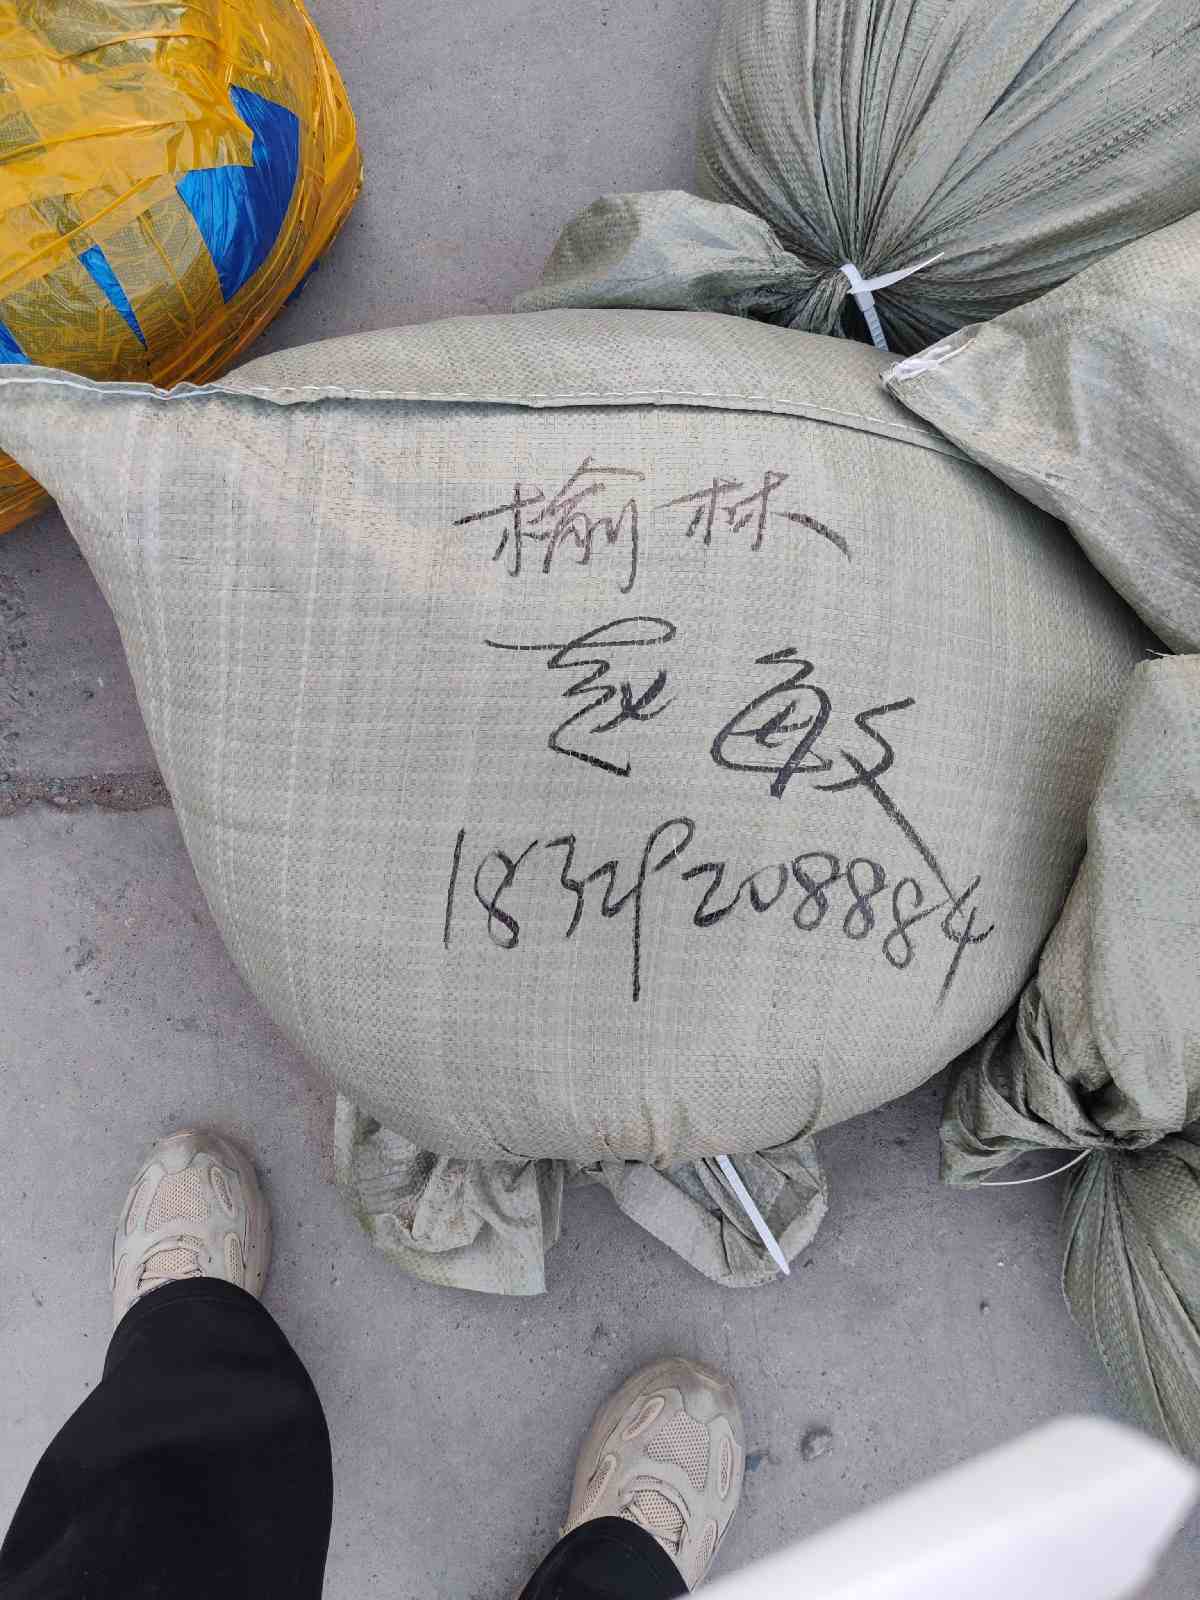 榆林
赵敏
18329208884